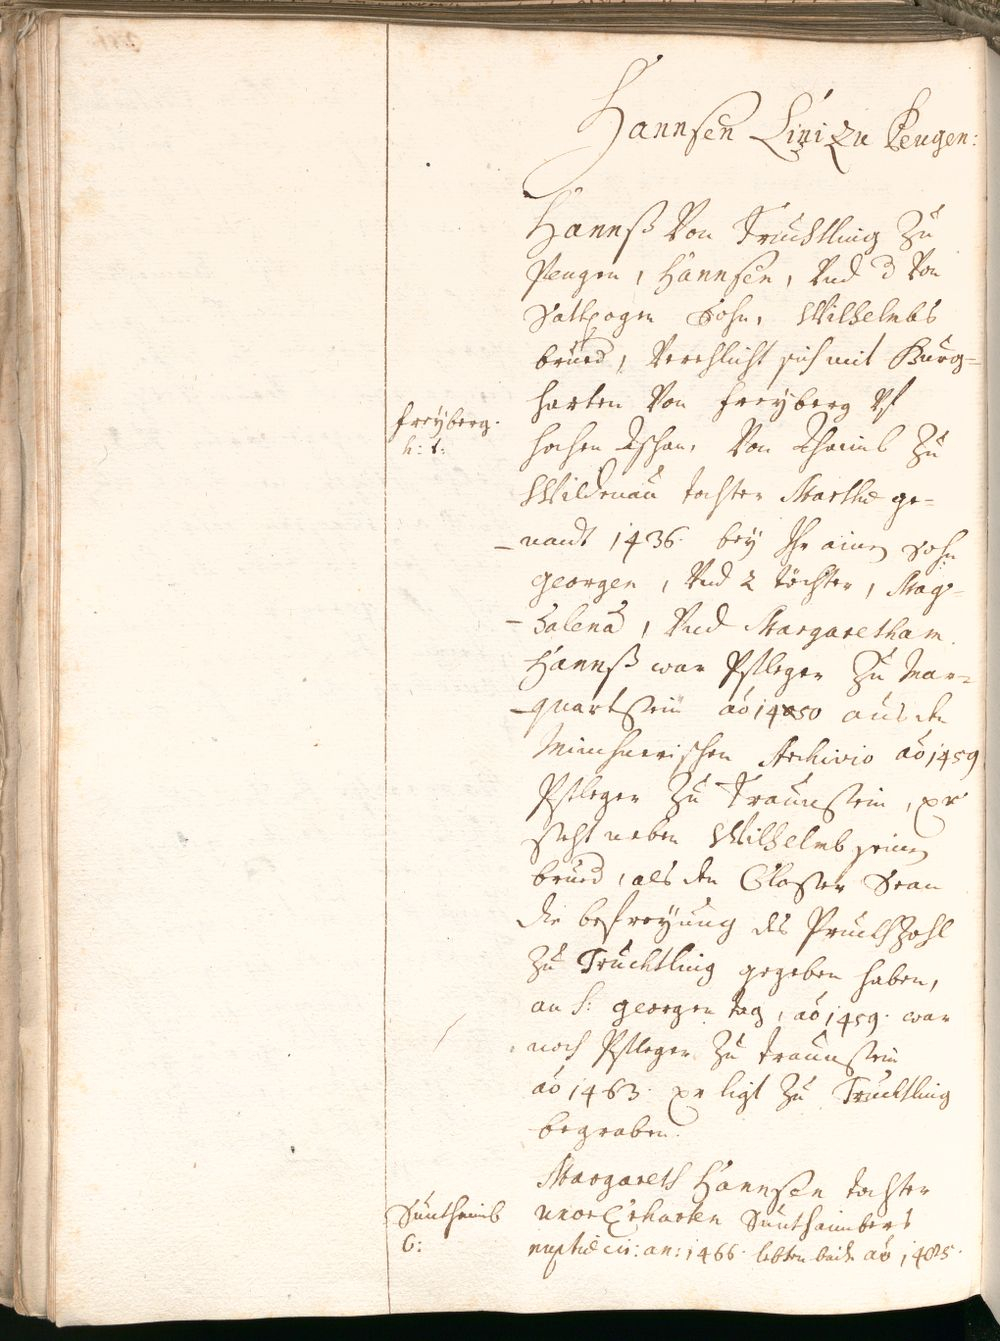 Hannsen Lini Zu Pengen:
Hannß Von Truchtling Zu
Pengen, Hannsen, Vnd d Von
Sattpogen Sohn, Wilhelmbs
brued, Verehlicht sich mit Burg-
harten Von Freyberg Vf
freyberg.
h: t:
hochen Aschau, Von Thaimb Zu
Wildenau tochter Martha ge-
nandt 1436. bey Ihr ainen Sohn
Georgen, Vnd 2 töchter, Mag-
dalena, Vnd Margaretham.
Hannß war Pfleger Zu Mar-
quartstein ao 1450 aus dem
Münchnerischen Archivio ao 1459
Pfleger Zu Traunstein, er
steht neben Wilhelmb seinen
brued, als den Closter Seon
die befreyung des Pruckhzohl
Zu Truchtling gegeben haben,
an S: Georgen tag, ao 1459. war
noch Pfleger Zu Traunstein
ao 1463. er ligt Zu Truchtling
begraben.
Margareth Hannsen tochter
Suntheimb
C:
uxor Erharten Sunthaimbers
nuptiæ cir: an: 1466. lebten beide ao 1485.